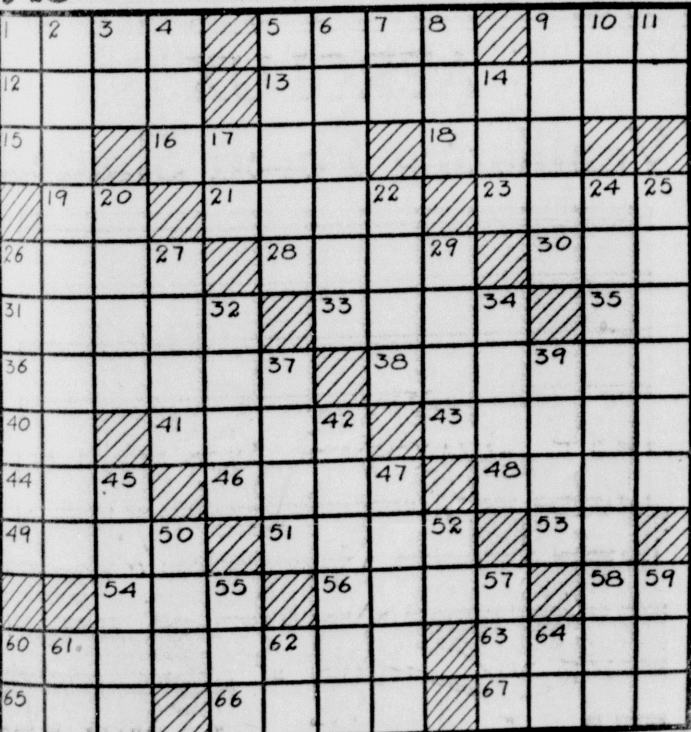 1 2 3 4 5 6 7 8 9 10 11
12 13 14
15 16 17 18
19 20 21 22 23 24 25
26 27 28 29 30
31 32 33 34 35
36 37 38 39
40 41 42 43
44 45 46 47 48
49 50 51 52 53
54 55 56 57 58 59
60 61 62 63 64
65 66 67